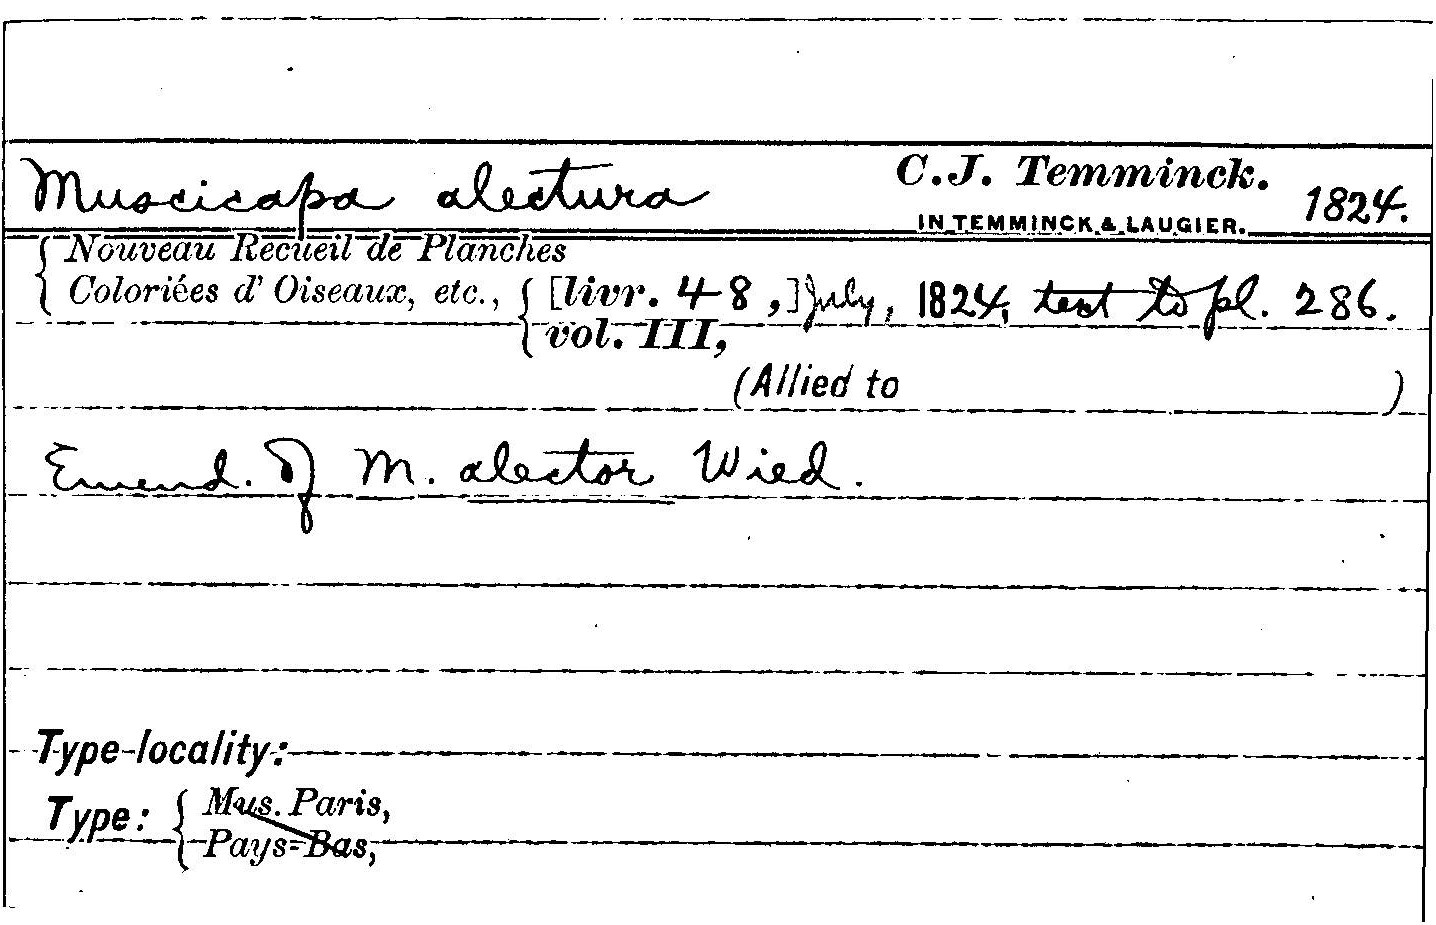 Muscicapa alectura C.J. Temminck. 1824.
IN TEMMINCK & LAUGIER.
Nouveau Recueil de Planches
Coloriées d' Oiseaux, etc., [livr. 48,] July, 1824, text to pl. 286.
vol. III,
(Allied to )
Emend. of M. alector Wied.
Type-locality:
Type: Mus. Paris,
Pays-Bas,